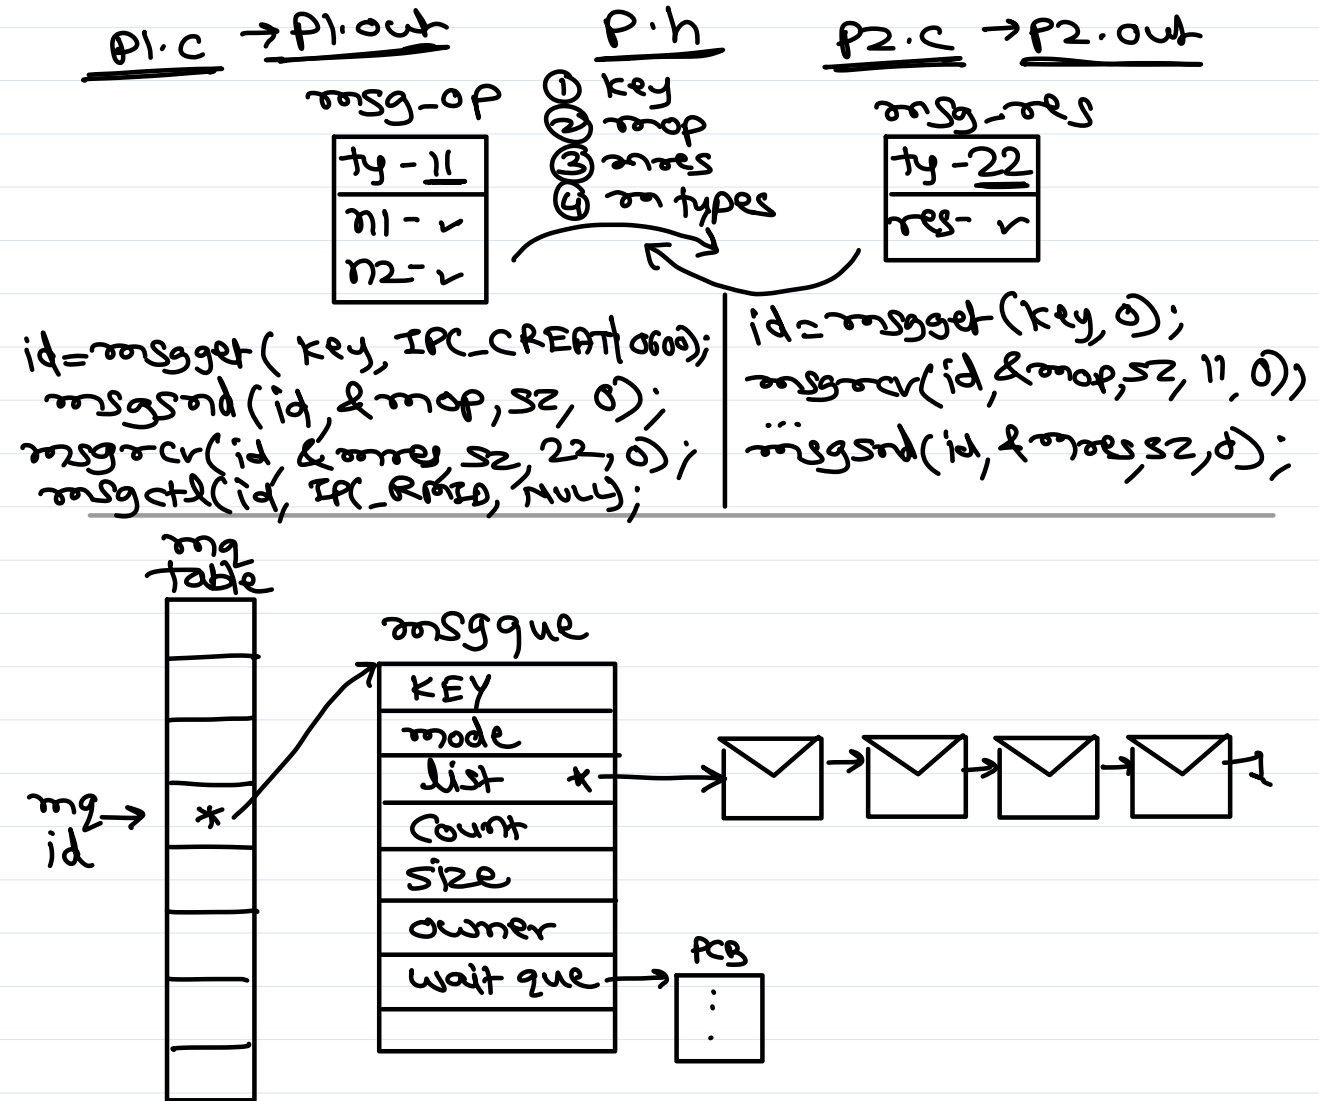 p1.c → p1.out
p.h
p2.c → p2.out
msg_op
ty - 11
n1 - ✓
n2 - ✓
① key
② mop
③ mres
④ m types
msg_res
ty - 22
res - ✓
id=msgget( key, IPC_CREAT|0600);
msgsnd(id, &mop, sz, 0);
msgrcv(id, &mres, sz, 22, 0);
msgctl(id, IPC_RMID, NULL);
id=msgget(key, 0);
msgrcv(id, &mop, sz, 11, 0);
...
msgsnd(id, &mres, sz, 0);
mq
table
mq
id
*
msg que
KEY
mode
list *
count
size
owner
wait que
PCB